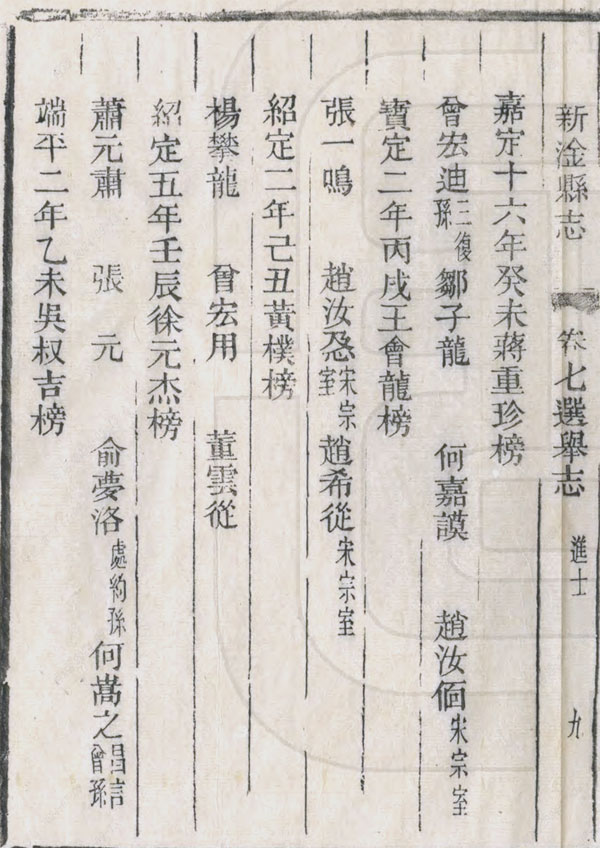 新淦縣志 卷七選舉志 進士 九
嘉定十六年癸未蔣重珍榜
曾宏迪三復孫 鄒子龍 何嘉謨 趙汝佪宋宗室
寳定二年丙戌王會龍榜
張一鳴 趙汝㤅宋宗室 趙希從宋宗室
紹定二年己丑黃樸榜
楊攀龍 曾宏用 董雲從
紹定五年壬辰徐元杰榜
蕭元肅 張元 俞夢洛處約孫 何蒿之昌言曾孫
端平二年乙未吳叔吉榜